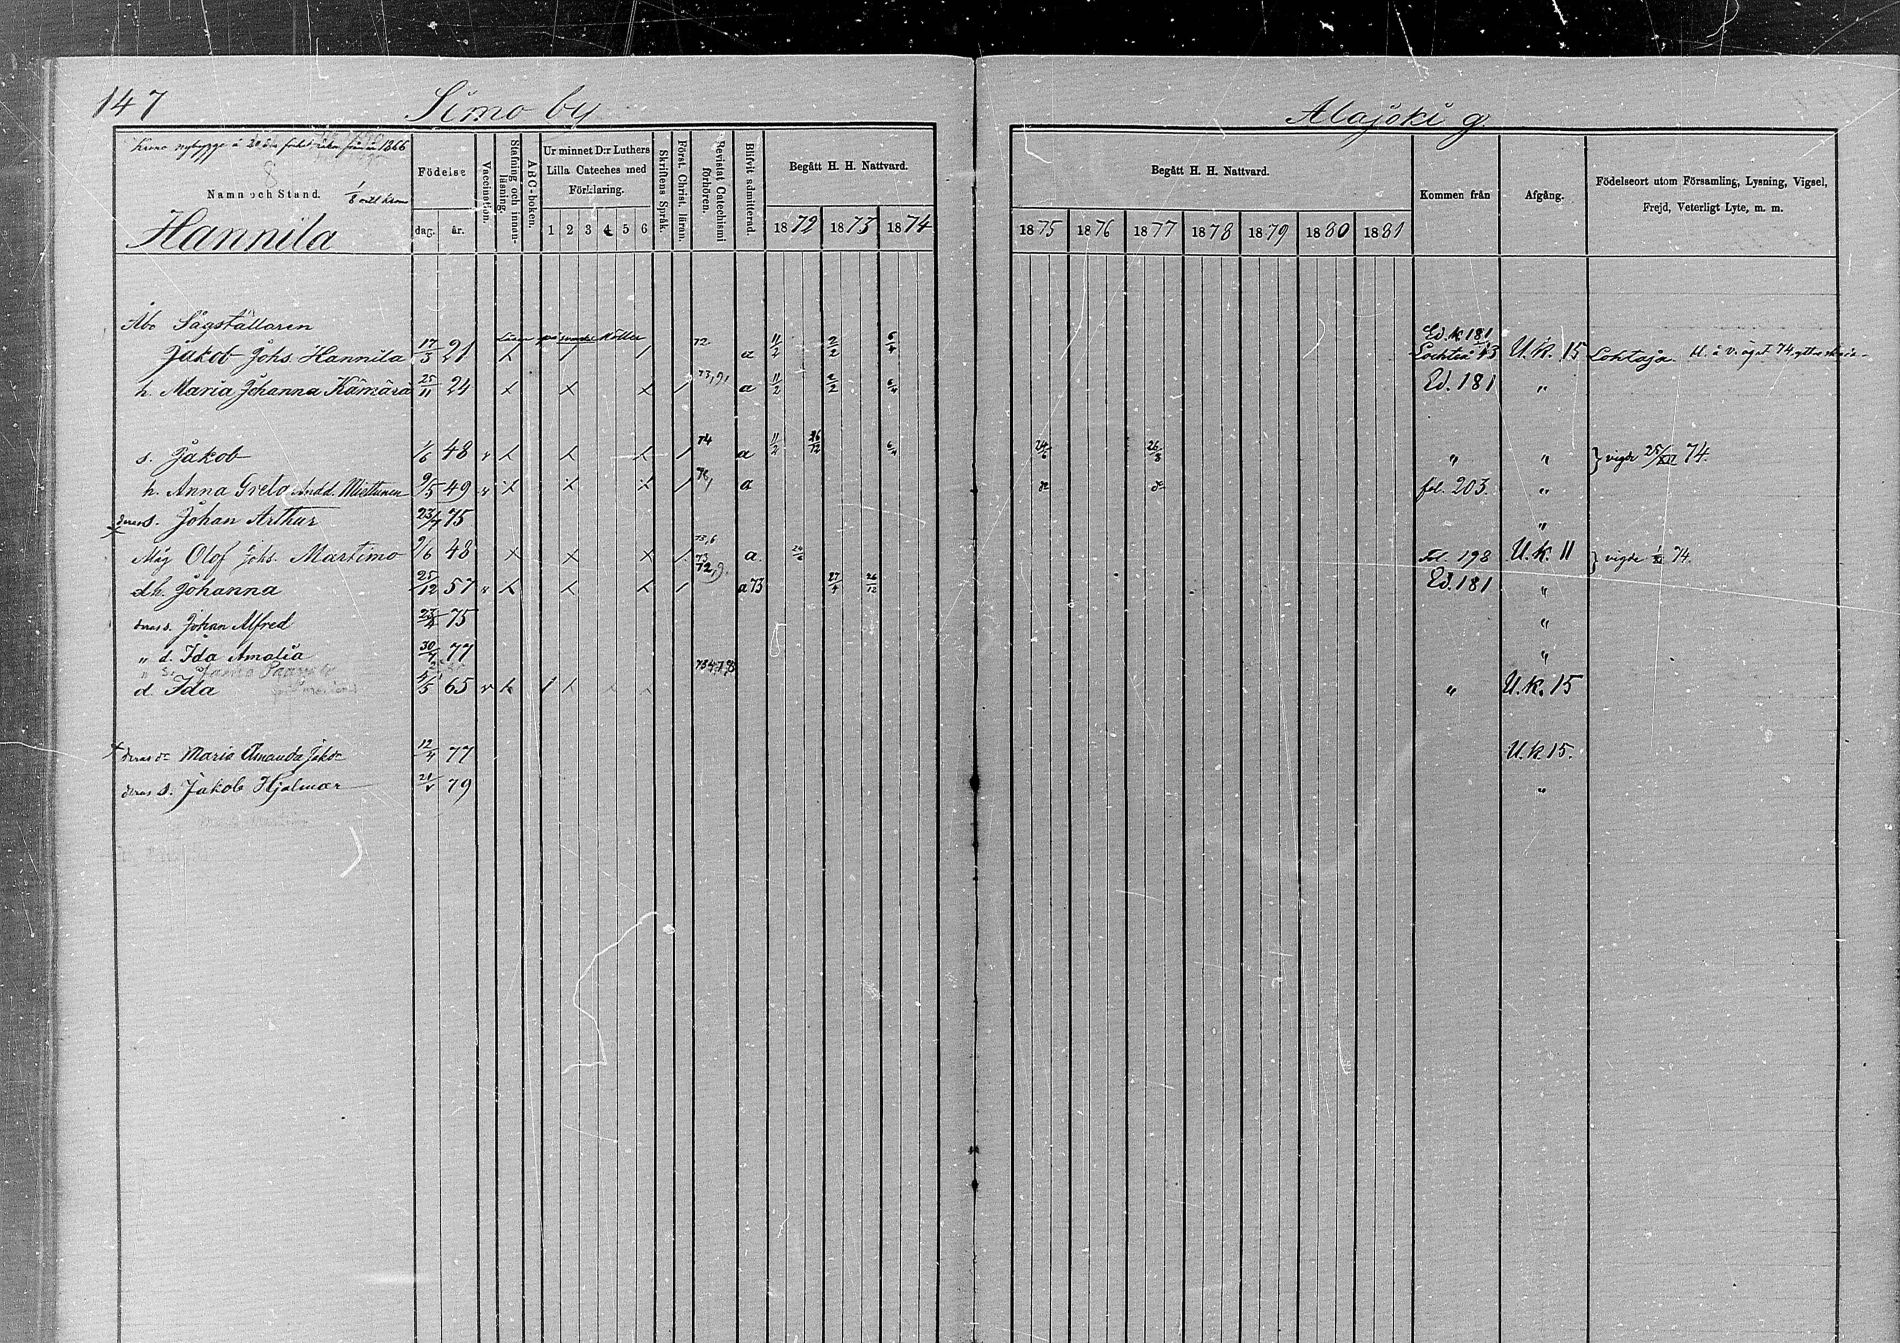 147 Simo by Alajoki g
Krono nybygge å 20 års frihet räkn. från år 1866
8
Namn och Stand. 1/8 mtl krono
Hannila
Födelse dag. år. Vaccination. Stafning och innanläsning. ABC-boken. Ur minnet D:r Luthers Lilla Cateches med Förklaring. 1 2 3 4 5 6 Skriftens Språk. Först. Christ. läran. Bevistat Catechismi förhören. Blifvit admitterad. Begått H. H. Nattvard. 1872 1873 1874
Begått H. H. Nattvard. 1875 1876 1877 1878 1879 1880 1881 Kommen från Afgång. Födelseort utom Församling, Lysning, Vigsel, Frejd, Veterligt Lyte, m. m.
Åbo Sågställaren
Ed. k 181
Jakob Johs. Hannila 17/3 21 72 a 11/2 2/2 6/4 Lochteå 43 U.k. 15 Lohtaja
h. Maria Johanna Kämärä 25/11 24 a 11/2 2/2 6/4 Ed. 181 "
s. Jakob 1/6 48 v 74 a 11/2 26/12 6/4 24/6 26/8 " " } vigde 25/XII 74.
h. Anna Greta Andd. Miettunen 9/5 49 v a fol. 203. "
deras s. Johan Arthur 23/7 75 "
Måg Olof Johs. Martimo 9/6 48 a. 24/6 Fol. 198 U.k 11 } vigde 74.
d.h. Johanna 25/12 57 v a 73 27/4 26/12 Ed. 181 "
deras s. Johan Alfred 23/4 75 "
" d. Ida Amalia 30/9 77 "
" s.
d. Ida 4/5 65 v " U.k. 15
deras dr Maria Amanda Jakdr 12/4 77 U.k. 15.
deras s. Jakob Hjalmar 21/V 79 "